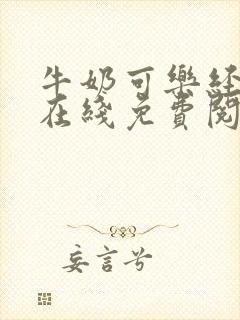 牛奶可樂经
在綫免費閱
妄言兮